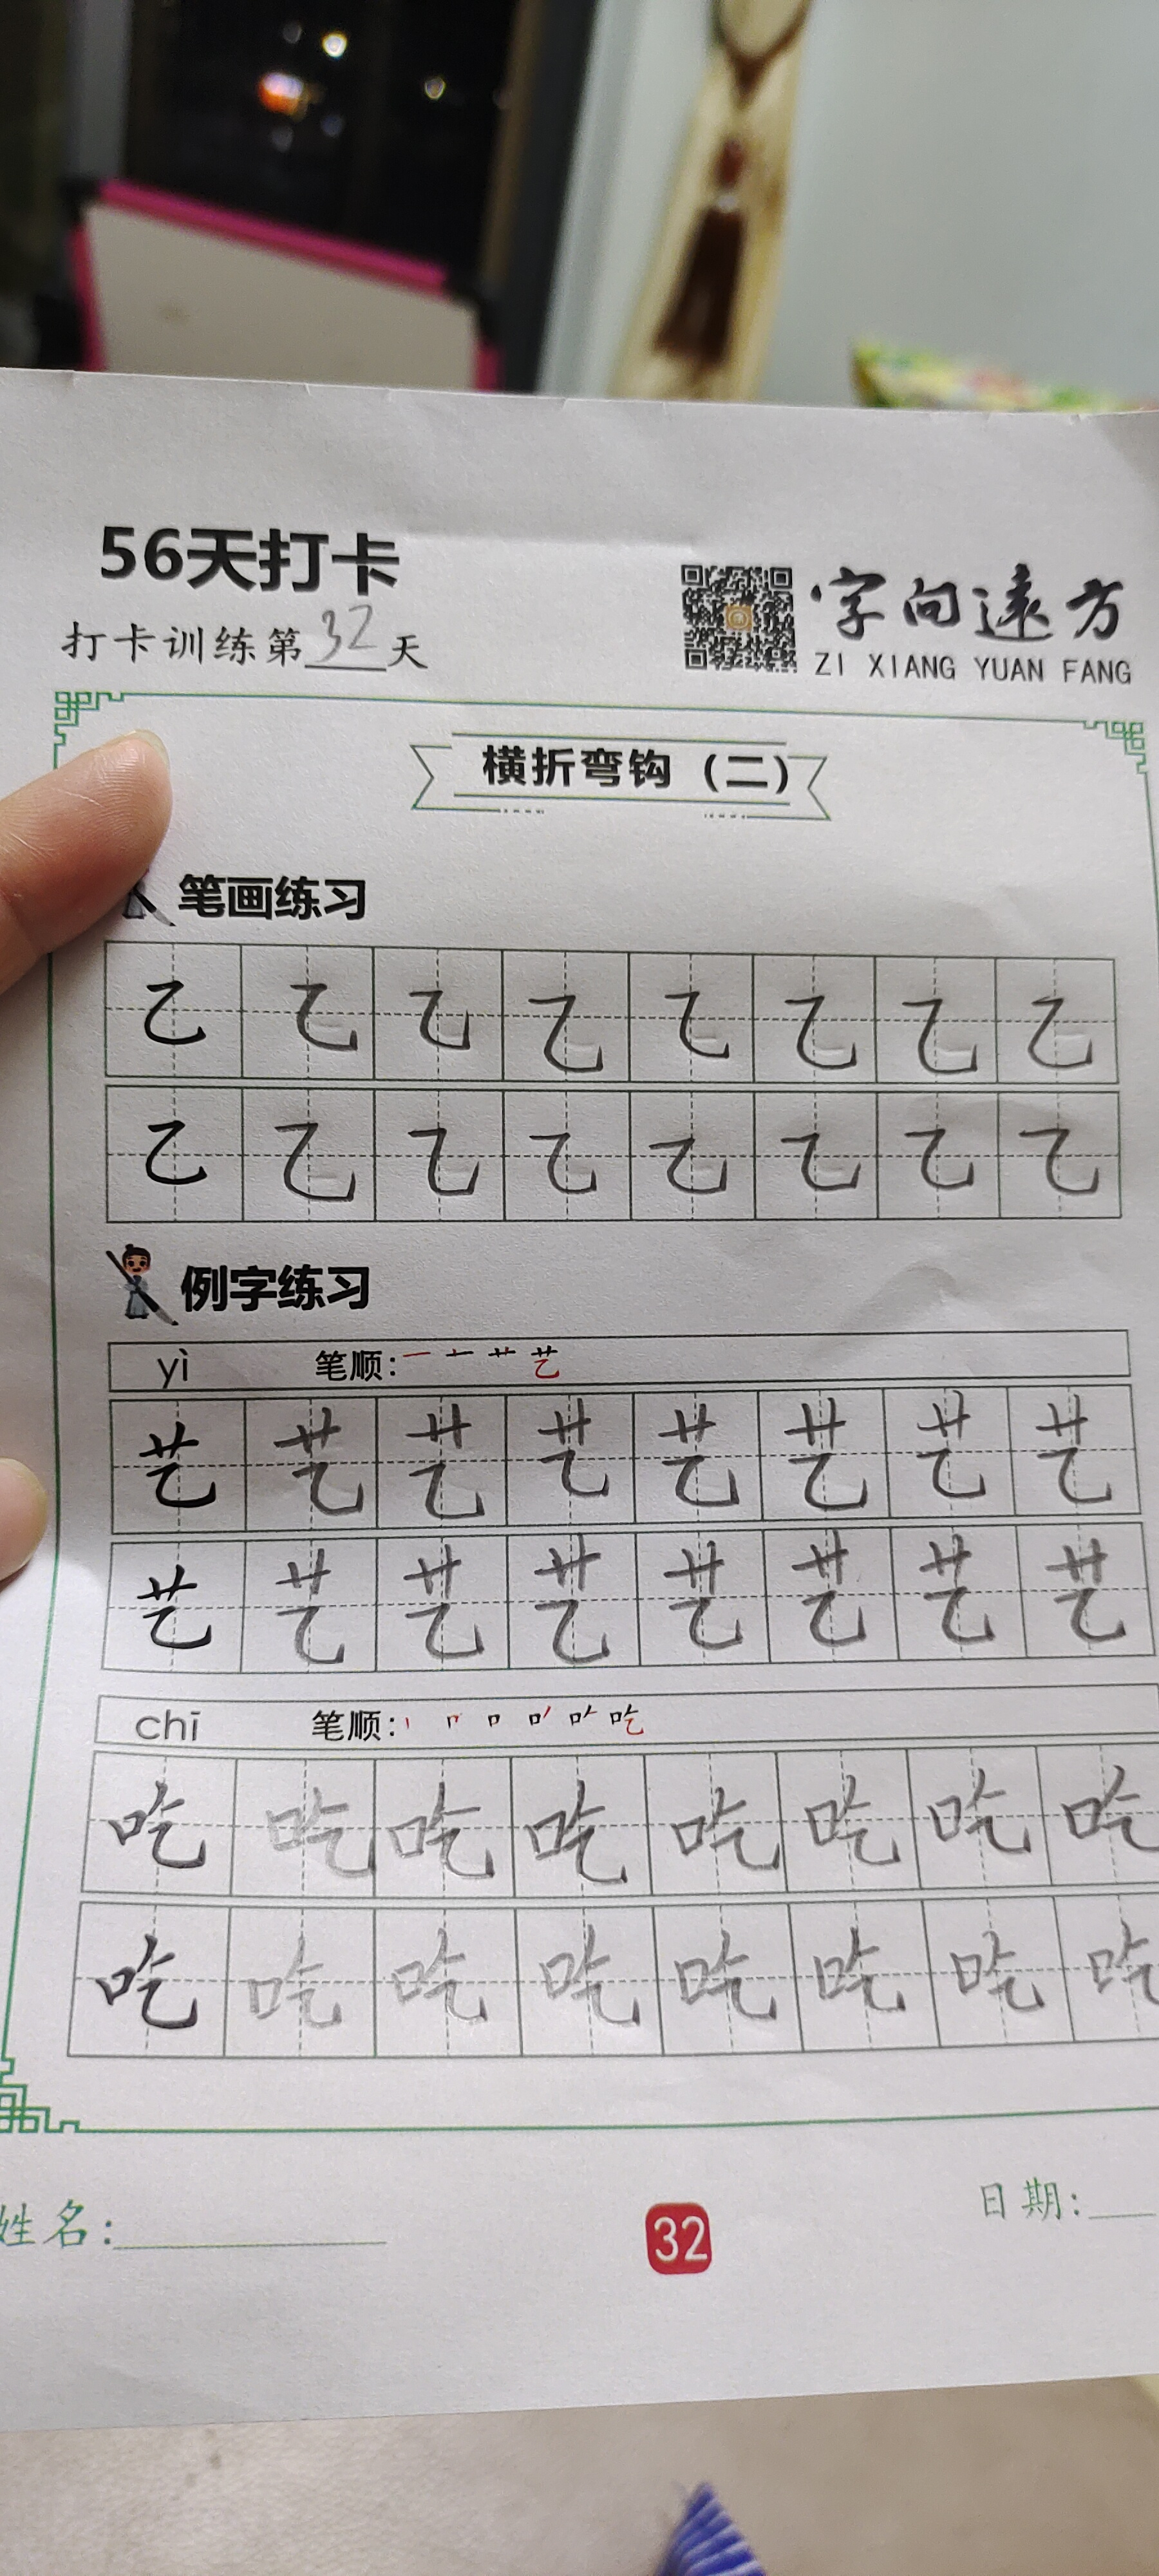 56天打卡
打卡训练第32天
字向遠方
ZI XIANG YUAN FANG
横折弯钩（二）
笔画练习
乙 乙 乙 乙 乙 乙 乙 乙
乙 乙 乙 乙 乙 乙 乙 乙
例字练习
yì 笔顺: 一 艹 艺
艺 艺 艺 艺 艺 艺 艺 艺
艺 艺 艺 艺 艺 艺 艺 艺
chī 笔顺: 丨 口 吃
吃 吃 吃 吃 吃 吃 吃 吃
吃 吃 吃 吃 吃 吃 吃 吃
姓名:
32
日期: